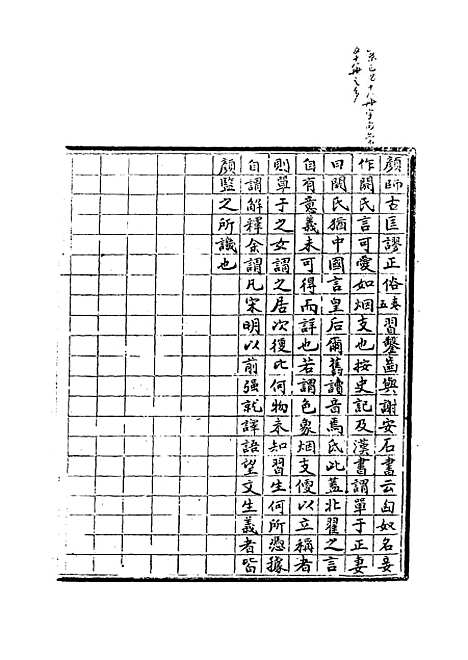 顏師古匡謬正俗五卷習鑿齒與謝安石書云匈奴名妾
作閼氏言可愛如烟支也按史記及漢書謂單于正妻
曰閼氏猶中國言皇后爾舊讀音焉氏此蓋北翟之言
自有意義未可得而詳也若謂色象烟支便以立稱者
則單于之女謂之居次復比何物未知習生何所憑據
自謂解釋余謂凡宋明以前强就譯語望文生義者皆
顏監之所譏也